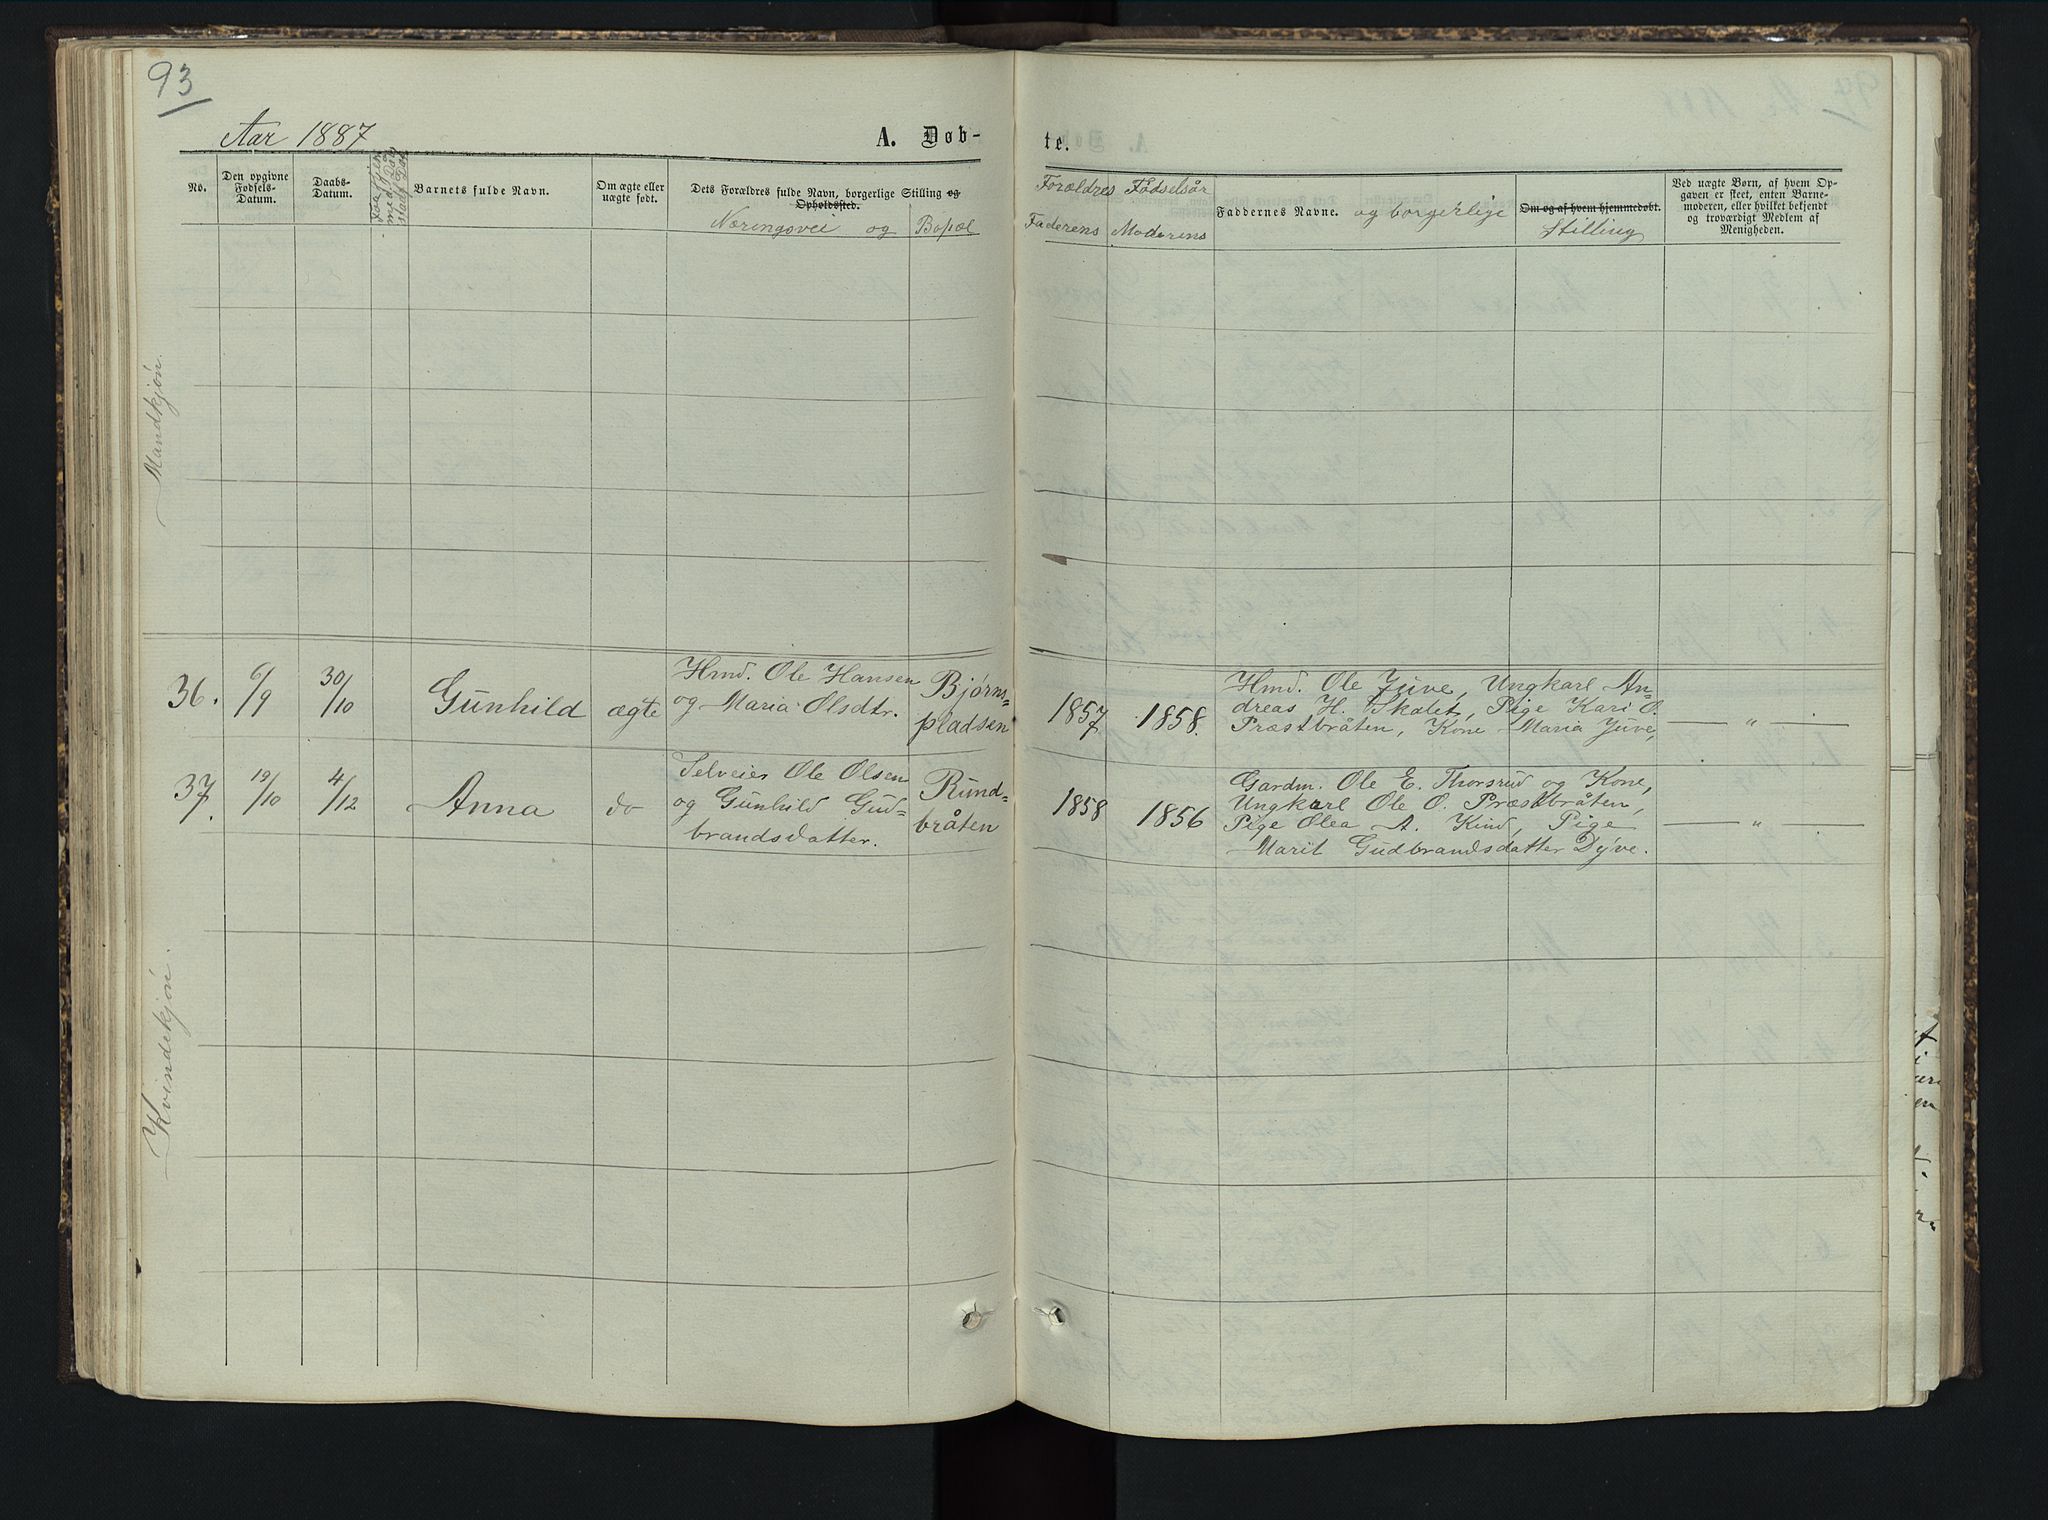 93
Aar 1887
A. Døb-
te.
No.
Den opgivne
Fødsels-
Datum.
Daabs-
Datum.
Barnets fulde Navn.
Om ægte eller
uægte født.
Dets Forældres fulde Navn, borgerlige Stilling og
Opholdssted.
Næringsvei og Bopæl
Forældres Fødselsår
Faderens Moderens
Faddernes Navne. og borgerlige
Om og af hvem hjemmedøbt.
Stilling
Ved uægte Børn, af hvem Op-
gaven er skeet, enten Barne-
moderen, eller hvilket bekjendt
og troværdigt Medlem af
Menigheden.
Mandkjøn.
36. 6/9 30/10 Gunhild ægte
Hmd. Ole Hansen
og Maria Olsdtr.
Bjørns-
pladsen
1857 1858.
Hmd. Ole Juve, Ungkarl An-
dreas H. Skalet, Pige Kari O.
Præstbråten, Kone Maria Juve,
— " —
37. 19/10 4/12 Anna do
Selveier Ole Olsen
og Gunhild Gud-
brandsdatter.
Rund-
bråten
1858 1856
Gardm. Ole E. Thorsrud og Kone,
Ungkarl Ole O. Præstbråten,
Pige Olea A. Kind, Pige
Marit Gudbrandsdatter Dyve.
— " —
Kvindekjøn.